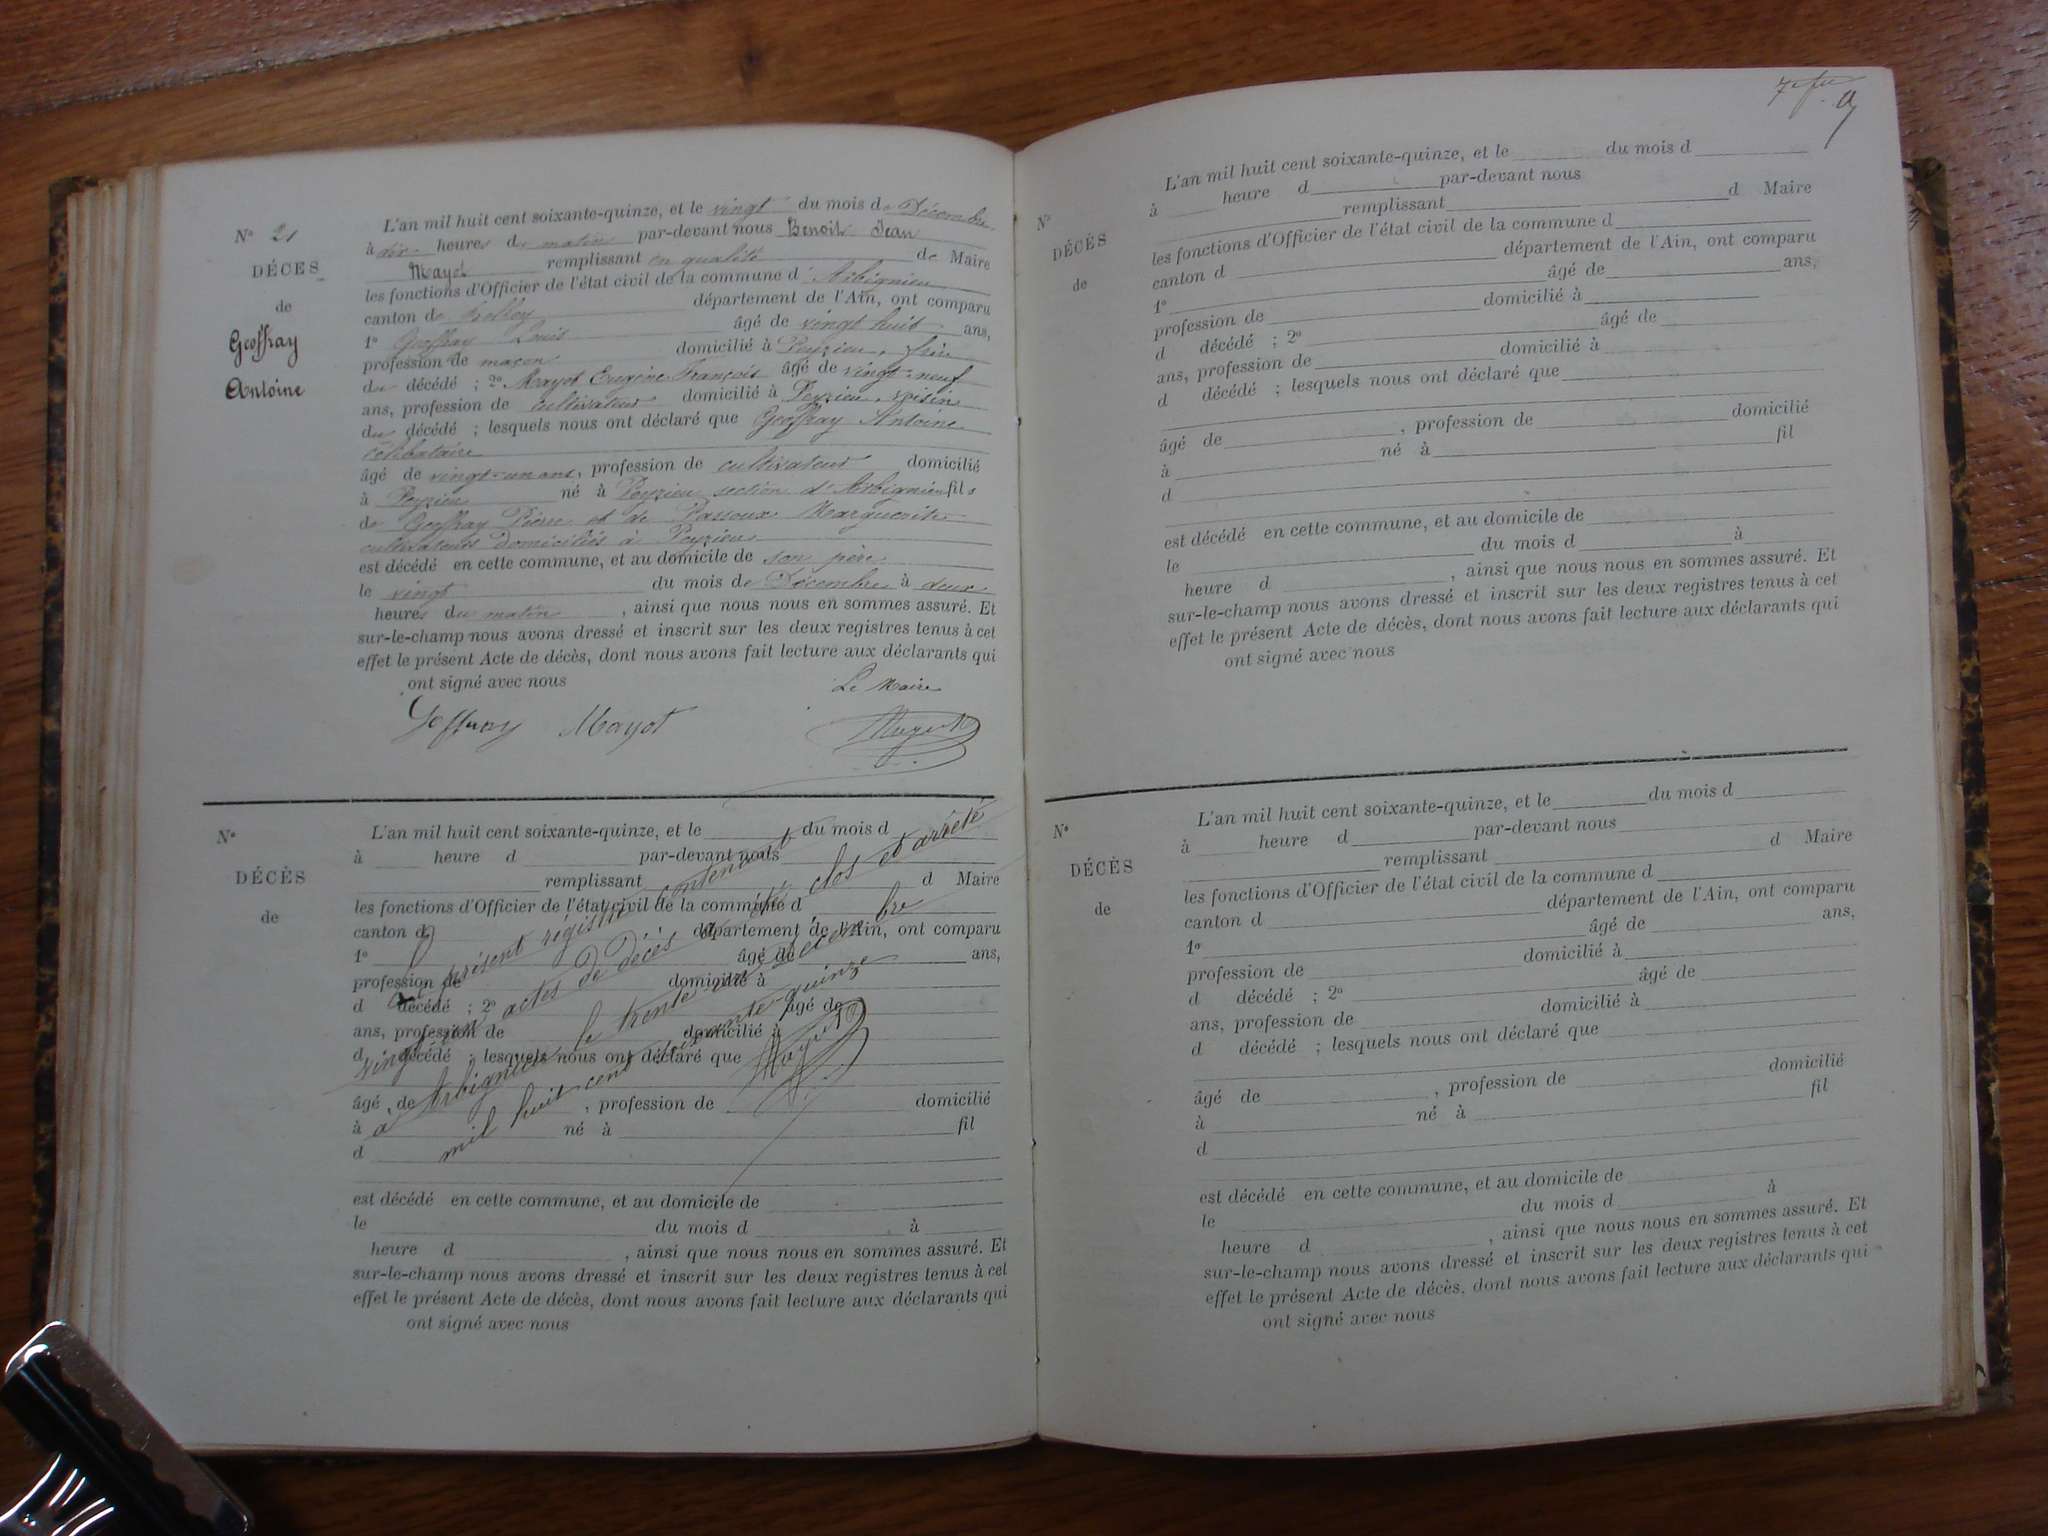 N° 21
DÉCÈS
de
Geoffray
Antoine
L'an mil huit cent soixante-quinze, et le vingt du mois de Décembre
à dix heures du matin par-devant nous Benoit Jean
Mayot remplissant en qualité de Maire
les fonctions d'Officier de l'état civil de la commune d'Arbignieu
canton de Belley département de l'Ain, ont comparu
1° Geoffray Louis âgé de vingt huit ans,
profession de maçon domicilié à Peyzieu, frère
du décédé ; 2° Mayot Eugène François âgé de vingt-neuf
ans, profession de cultivateur domicilié à Peyzieu, voisin
du décédé ; lesquels nous ont déclaré que Geoffray Antoine
célibataire
âgé de vingt-un ans, profession de cultivateur domicilié
à Peyzieu né à Peyzieu section d'Arbignieu fils
de Geoffray Pierre et de Marguerite
cultivateurs domiciliés à Peyzieu
est décédé en cette commune, et au domicile de son père
le vingt du mois de Décembre à deux
heures du matin, ainsi que nous nous en sommes assuré. Et
sur-le-champ nous avons dressé et inscrit sur les deux registres tenus à cet
effet le présent Acte de décès, dont nous avons fait lecture aux déclarants qui
ont signé avec nous
Le Maire
Geffray Mayot Mayot
N°
DÉCÈS
de
L'an mil huit cent soixante-quinze, et le du mois d
à heure d par-devant nous
remplissant d Maire
les fonctions d'Officier de l'état civil de la commune d
canton d département de l'Ain, ont comparu
1° âgé de ans,
profession de domicilié à
d décédé ; 2° âgé de
ans, profession de domicilié à
d décédé ; lesquels nous ont déclaré que
âgé de , profession de domicilié
à né à fil
d
est décédé en cette commune, et au domicile de
le du mois d à
heure d , ainsi que nous nous en sommes assuré. Et
sur-le-champ nous avons dressé et inscrit sur les deux registres tenus à cet
effet le présent Acte de décès, dont nous avons fait lecture aux déclarants qui
ont signé avec nous
Le présent régistre contenant
vingt-un actes de décès a été clos et arrêté
à Arbignieu le trente-un Décembre
mil huit cent soixante-quinze
Mayot
7e
9
N°
DÉCÈS
de
L'an mil huit cent soixante-quinze, et le du mois d
à heure d par-devant nous
remplissant d Maire
les fonctions d'Officier de l'état civil de la commune d
canton d département de l'Ain, ont comparu
1° âgé de ans,
profession de domicilié à
d décédé ; 2° âgé de
ans, profession de domicilié à
d décédé ; lesquels nous ont déclaré que
âgé de , profession de domicilié
à né à fil
d
est décédé en cette commune, et au domicile de
le du mois d à
heure d , ainsi que nous nous en sommes assuré. Et
sur-le-champ nous avons dressé et inscrit sur les deux registres tenus à cet
effet le présent Acte de décès, dont nous avons fait lecture aux déclarants qui
ont signé avec nous
N°
DÉCÈS
de
L'an mil huit cent soixante-quinze, et le du mois d
à heure d par-devant nous
remplissant d Maire
les fonctions d'Officier de l'état civil de la commune d
canton d département de l'Ain, ont comparu
1° âgé de ans,
profession de domicilié à
d décédé ; 2° âgé de
ans, profession de domicilié à
d décédé ; lesquels nous ont déclaré que
âgé de , profession de domicilié
à né à fil
d
est décédé en cette commune, et au domicile de
le du mois d à
heure d , ainsi que nous nous en sommes assuré. Et
sur-le-champ nous avons dressé et inscrit sur les deux registres tenus à cet
effet le présent Acte de décès, dont nous avons fait lecture aux déclarants qui
ont signé avec nous